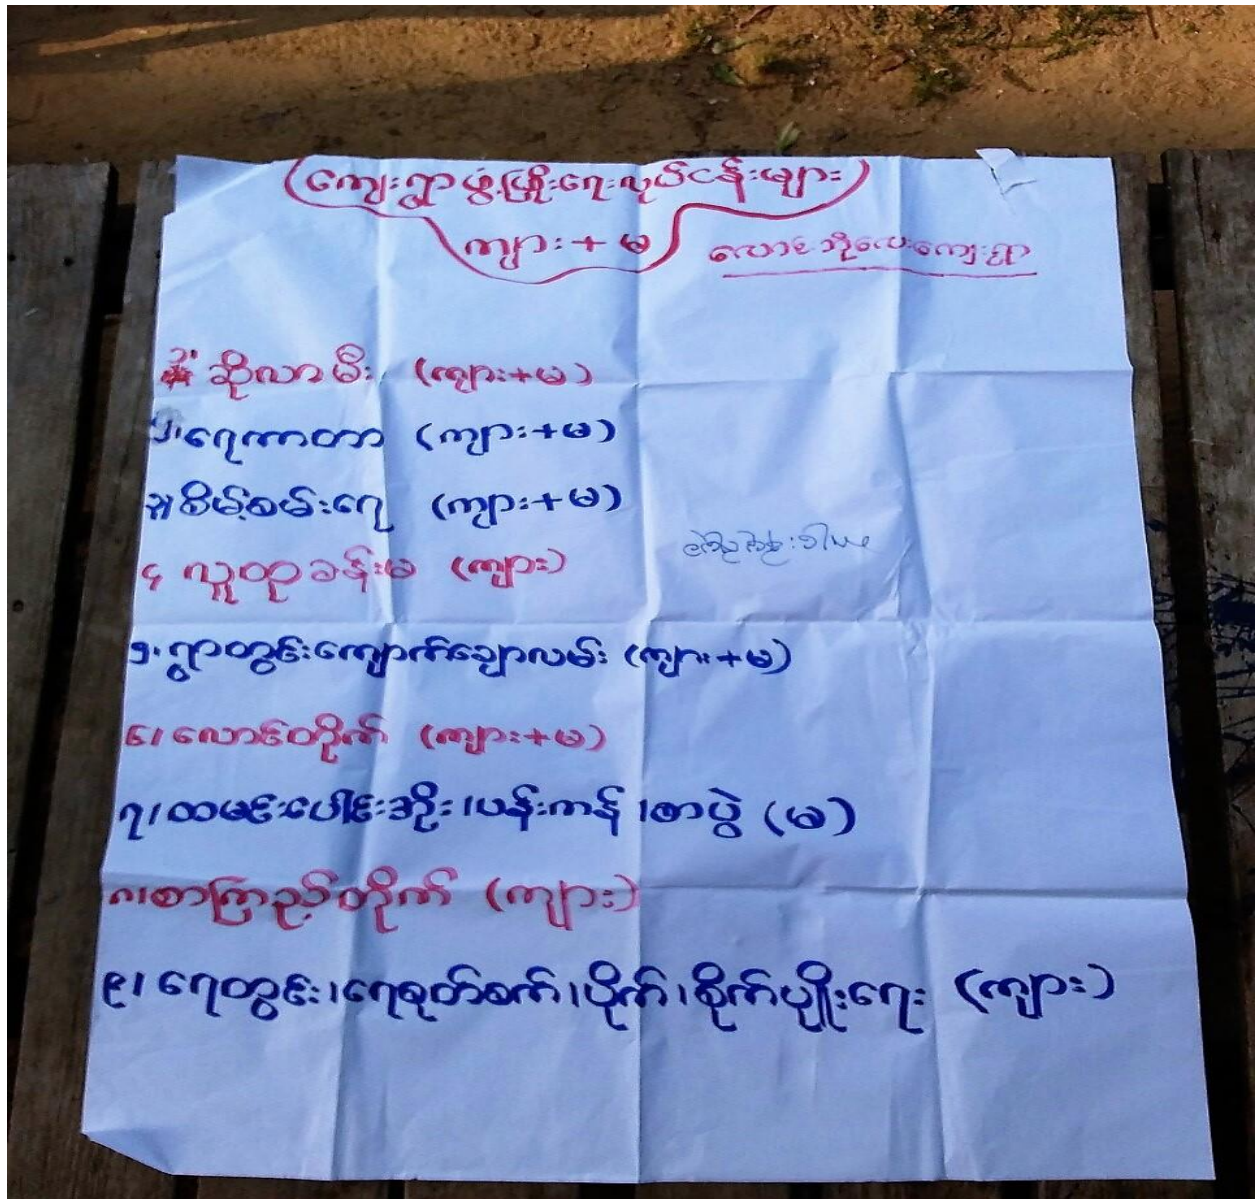 ကျေးရွာဖွံ့ဖြိုးရေးလုပ်ငန်းများ
ကျား + မ
လောင်းဘိုလေးကျေးရွာ
၁။ ဆိုလာမီး (ကျား+မ)
၂။ ရေကာတာ (ကျား+မ)
၃။ စိမ့်စမ်းရေ (ကျား+မ)
၄ လူထုခန်းမ (ကျား)
၅။ ရွာတွင်းကျောက်ချောလမ်း (ကျား+မ)
၆။ လောင်တိုက် (ကျား+မ)
၇။ ထမင်းပေါင်းအိုး ၊ပန်းကန် ၊စာပွဲ (မ)
၈။ စာကြည့်တိုက် (ကျား)
၉။ ရေတွင်း၊ ရေစုတ်စက်၊ ပိုက်၊ စိုက်ပျိုးရေး (ကျား)